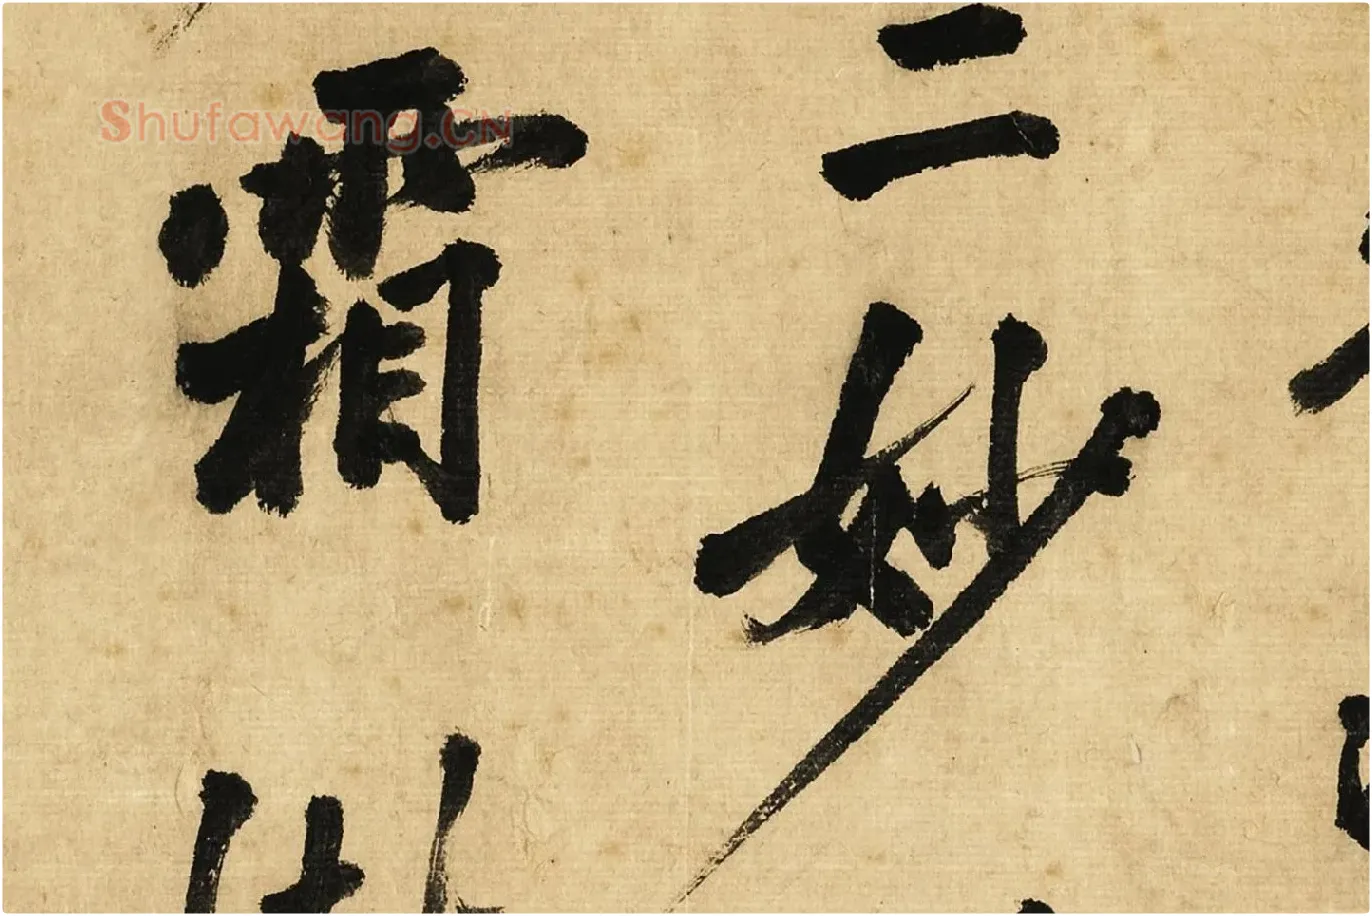 二妙
霜
Shufawang.CN